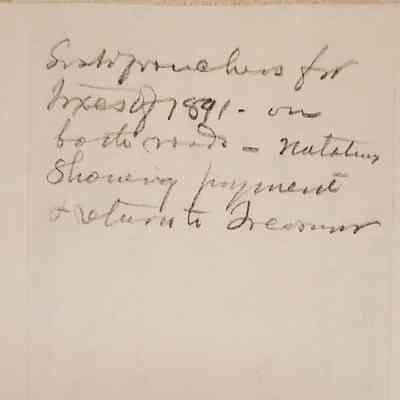 for
Taxes of 1891 - on
both roads -
Showing payment
& return to Treasurer